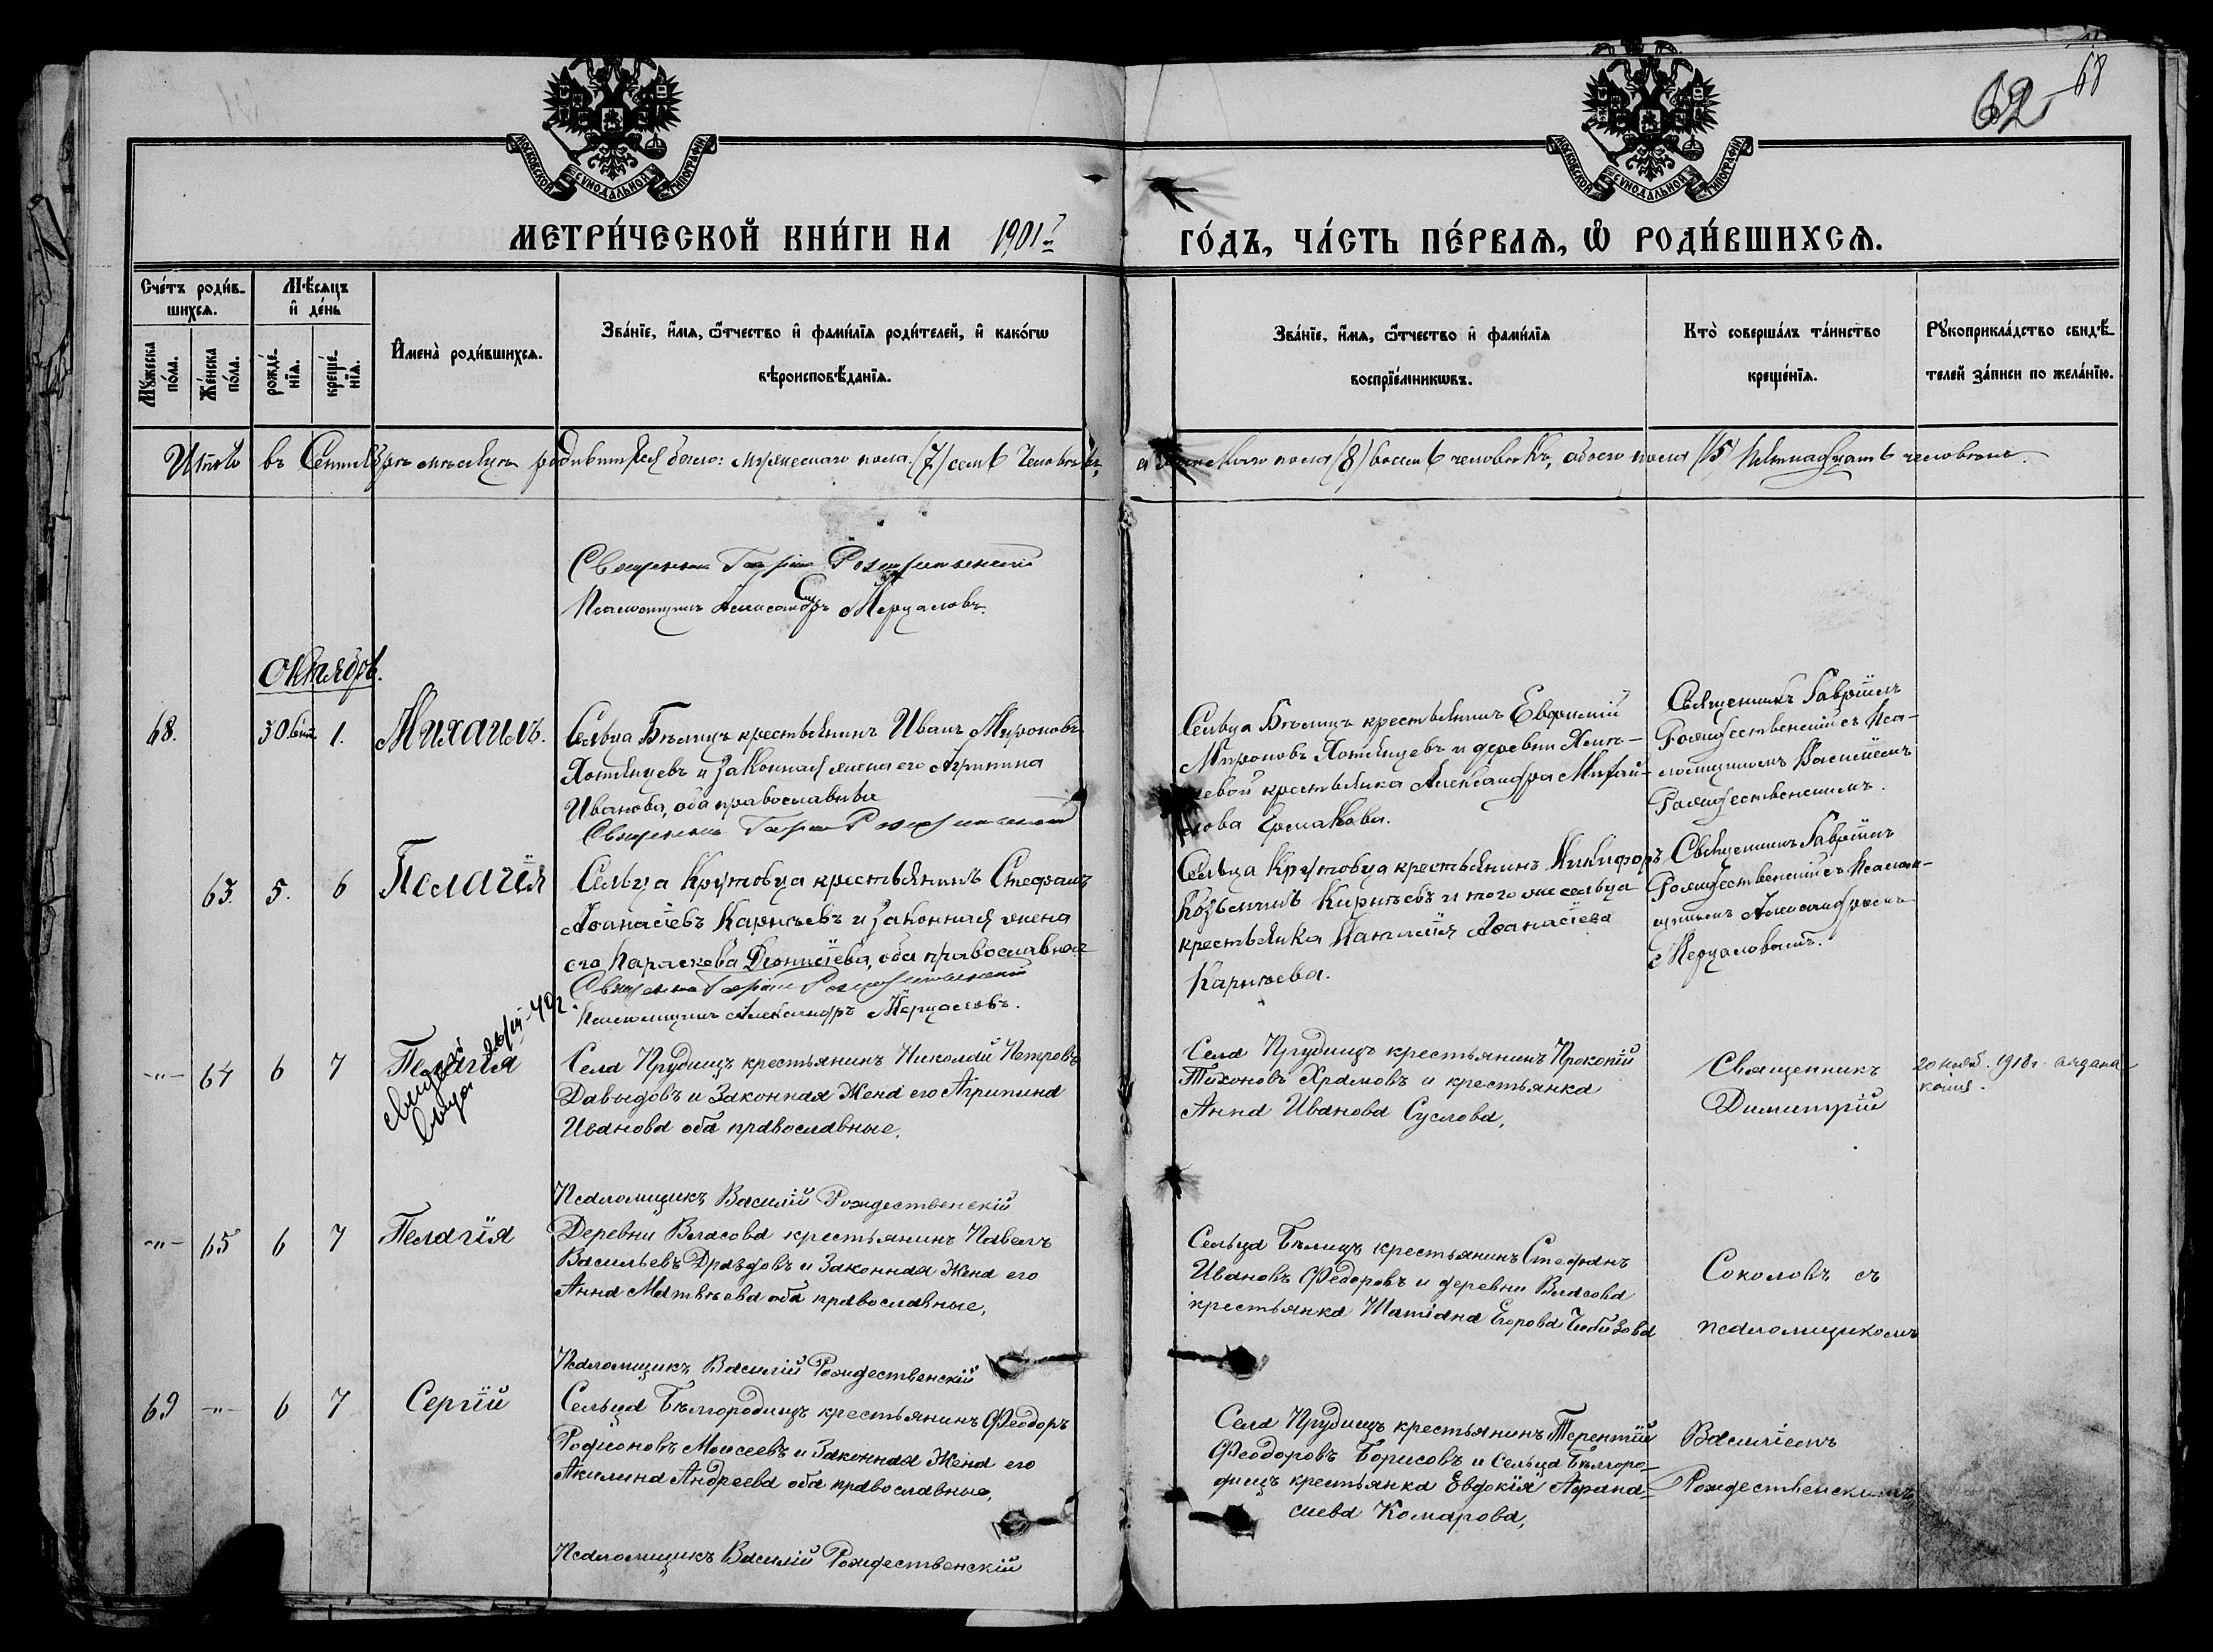 68
62
МОСКОВСКОЙ СУНОДАЛЬНОЙ ТИПОГРАФІИ
МОСКОВСКОЙ СУНОДАЛЬНОЙ ТИПОГРАФІИ
МЕТРИ́ЧЕСКОЙ КНИ́ГИ НА 1901 ГО́ДЪ, ЧА́СТЬ ПЕ́РВАѦ, Ѿ РОДИ́ВШИХСѦ.
Сче́тъ роди́в-
шихсѧ.
Мѣ́сѧцъ
и҆ де́нь
Мꙋ́жеска
по́ла.
Же́нска
по́ла.
рожде́-
нїѧ.
креще́-
нїѧ.
И҆мена̀ роди́вшихсѧ.
Зва́нїе, и҆́мѧ, ѻ҆́тчество и҆ фами́лїѧ роди́телей, и҆ како́гѡ
вѣроисповѣ́данїѧ.
Зва́нїе, и҆́мѧ, ѻ҆́тчество и҆ фами́лїѧ
воспрїе́мникѡвъ.
Кто̀ соверша́лъ та́инство
креще́нїѧ.
Рꙋкоприкла́дство свидѣ́-
телей за́писи по жела́нїю.
Итого въ Сентябрѣ мѣсяцѣ родившихся было: мужескаго пола (7) семь человѣкъ, а женскаго пола (8) восемь человѣкъ, обоего пола (15) пятнадцать человѣкъ.
Священникъ Гавріилъ Рождественскій
Псаломщикъ Александръ Мерцаловъ.
Октябрь.
68. 30 1. Михаилъ.
Сельца Бѣлицъ крестьянинъ Иванъ Мироновъ
Хотянцевъ и законная жена его Агрипина
Иванова, оба православные
Священникъ Гавріилъ Рождественскій
Сельца Бѣлицъ крестьянинъ Евфимій
Мироновъ Хотянцевъ и деревни
крестьянка Александра Михай-
лова Ермакова.
Священникъ Гавріилъ
Рождественскій съ Пса-
ломщикомъ Василіемъ
Рождественскимъ.
63. 5. 6 Пелагія
Сельца Крутовца крестьянинъ Стефанъ
Аѳанасіевъ Карнѣевъ и законная жена
его Параскева Діонисіева, оба православные
Священникъ Гавріилъ Рождественскій
Псаломщикъ Александръ Мерцаловъ.
Сельца Крутовца крестьянинъ Никифоръ
Козьминъ Карнѣевъ и того же сельца
крестьянка Наталія Аѳанасіева
Карнѣева.
Священникъ Гавріилъ
Рождественскій съ Псалом-
щикомъ Александромъ
Мерцаловымъ.
-"- 64 6 7 Пелагія
Села Прудищъ крестьянинъ Николай Петровъ
Давыдовъ и законная жена его Агрипина
Иванова оба православные.
Псаломщикъ Василій Рождественскій
Села Прудищъ крестьянинъ Прокопій
Тихоновъ Храмовъ и крестьянка
Анна Иванова Суслова,
Священникъ
Димитрій
20 нояб. 1918 г. выдана
копія.
-"- 65 6 7 Пелагія
Деревни Власова крестьянинъ Павелъ
Васильевъ Драздовъ и законная жена его
Анна Матвѣева оба православные,
Псаломщикъ Василій Рождественскій
Сельца Бѣлицъ крестьянинъ Стефанъ
Ивановъ Федоровъ и деревни Власова
крестьянка Татіана Егорова Чибизова
Соколовъ съ
псаломщикомъ
69 -"- 6 7 Сергій
Сельца Бѣлгородищъ крестьянинъ Феодоръ
Родіоновъ Моисеевъ и законная жена его
Акилина Андреева оба православные,
Псаломщикъ Василій Рождественскій
Села Прудищъ крестьянинъ Терентій
Феодоровъ Борисовъ и сельца Бѣлгоро-
дищъ крестьянка Евдокія Афана-
сиева Комарова,
Василіемъ
Рождественскимъ